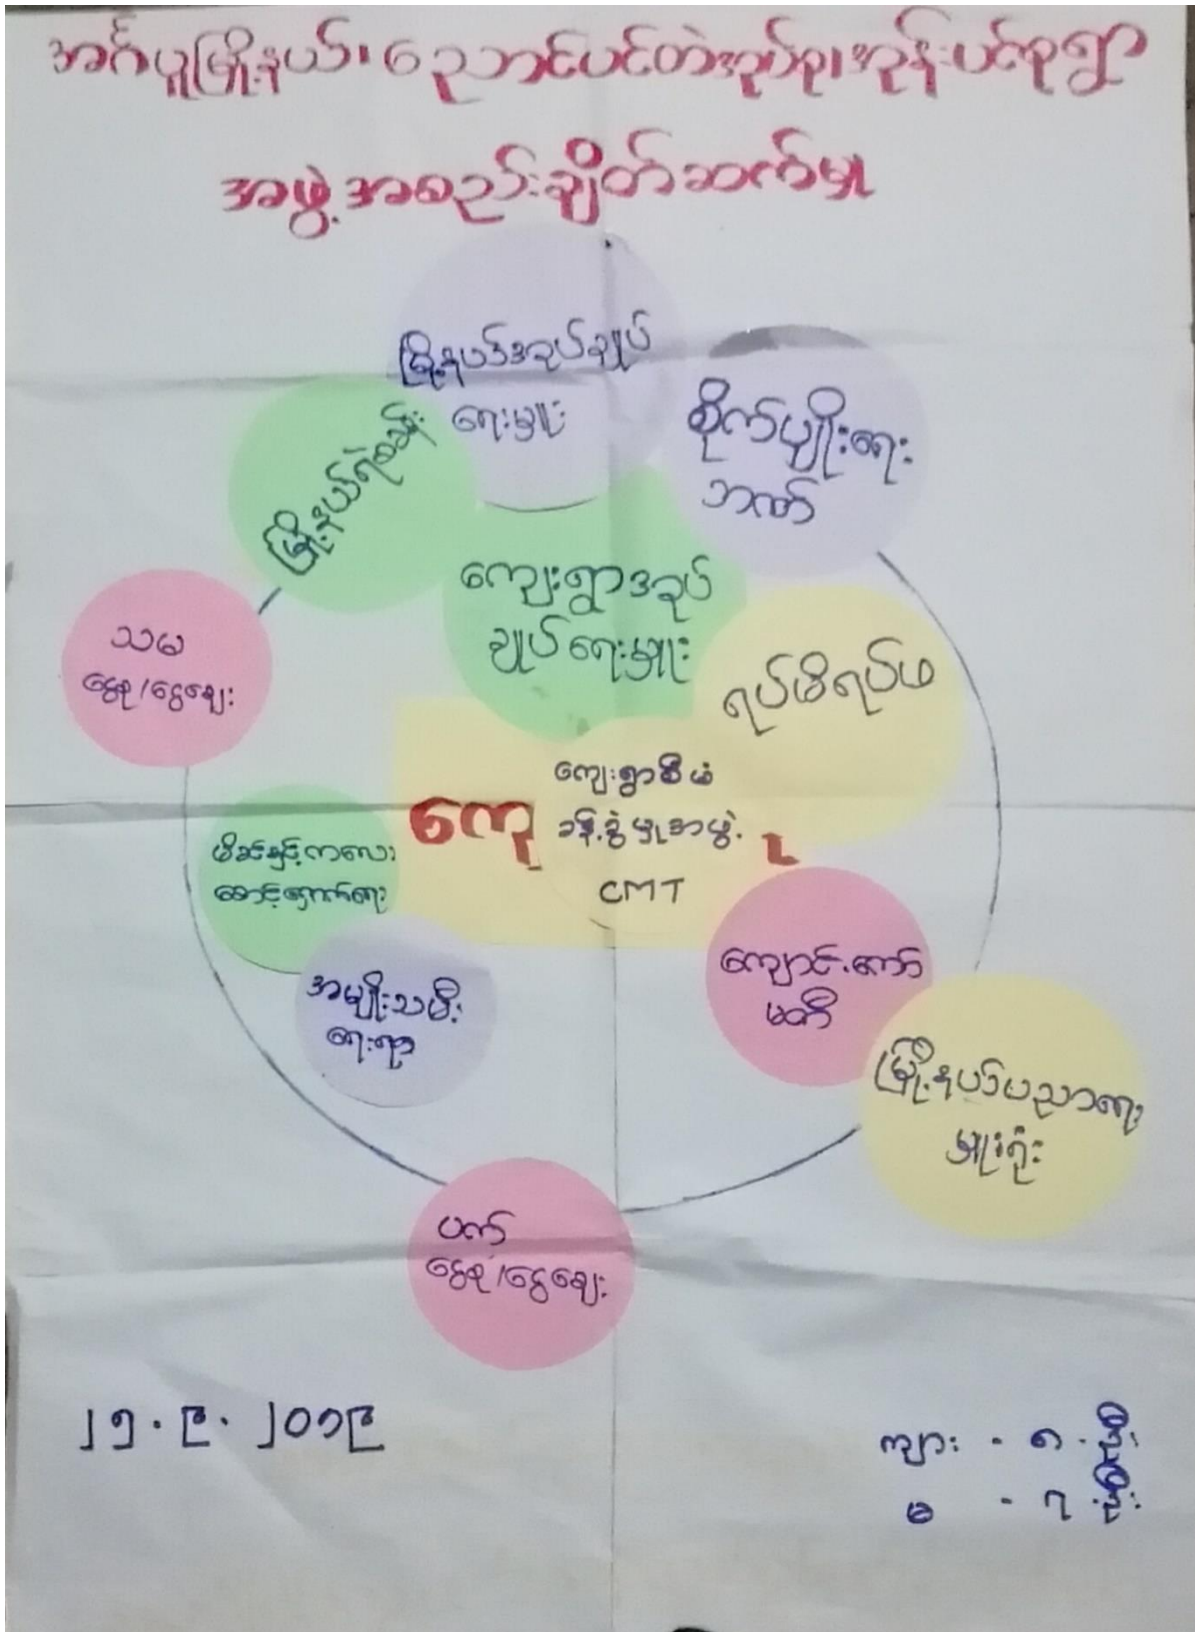 အင်္ဂပူမြို့နယ်၊ ညောင်ပင်တဲအုပ်စု၊ အုန်းပင်စုရွာ
အဖွဲ့အစည်းချိတ်ဆက်မှု
မြို့နယ်အုပ်ချုပ်
ရေးမှူး
စိုက်ပျိုးရေး
ဘဏ်
မြို့နယ်ရဲစခန်း
ကျေးရွာအုပ်
ချုပ်ရေးမှူး
သမ
ငွေစု/ငွေချေး
ရပ်မိရပ်ဖ
ကျေးရွာစီမံ
ခန့်ခွဲမှုအဖွဲ့
CMT
မိခင်နှင့်ကလေး
စောင့်ရှောက်ရေး
အမျိုးသမီး
ရေးရာ
ကျောင်းကော်
မတီ
မြို့နယ်ပညာရေး
မှူးရုံး
ပက်
ငွေစု/ငွေချေး
၂၅.၉.၂၀၁၉
ကျား - ၈ ဦး
မ - ၇ ဦး